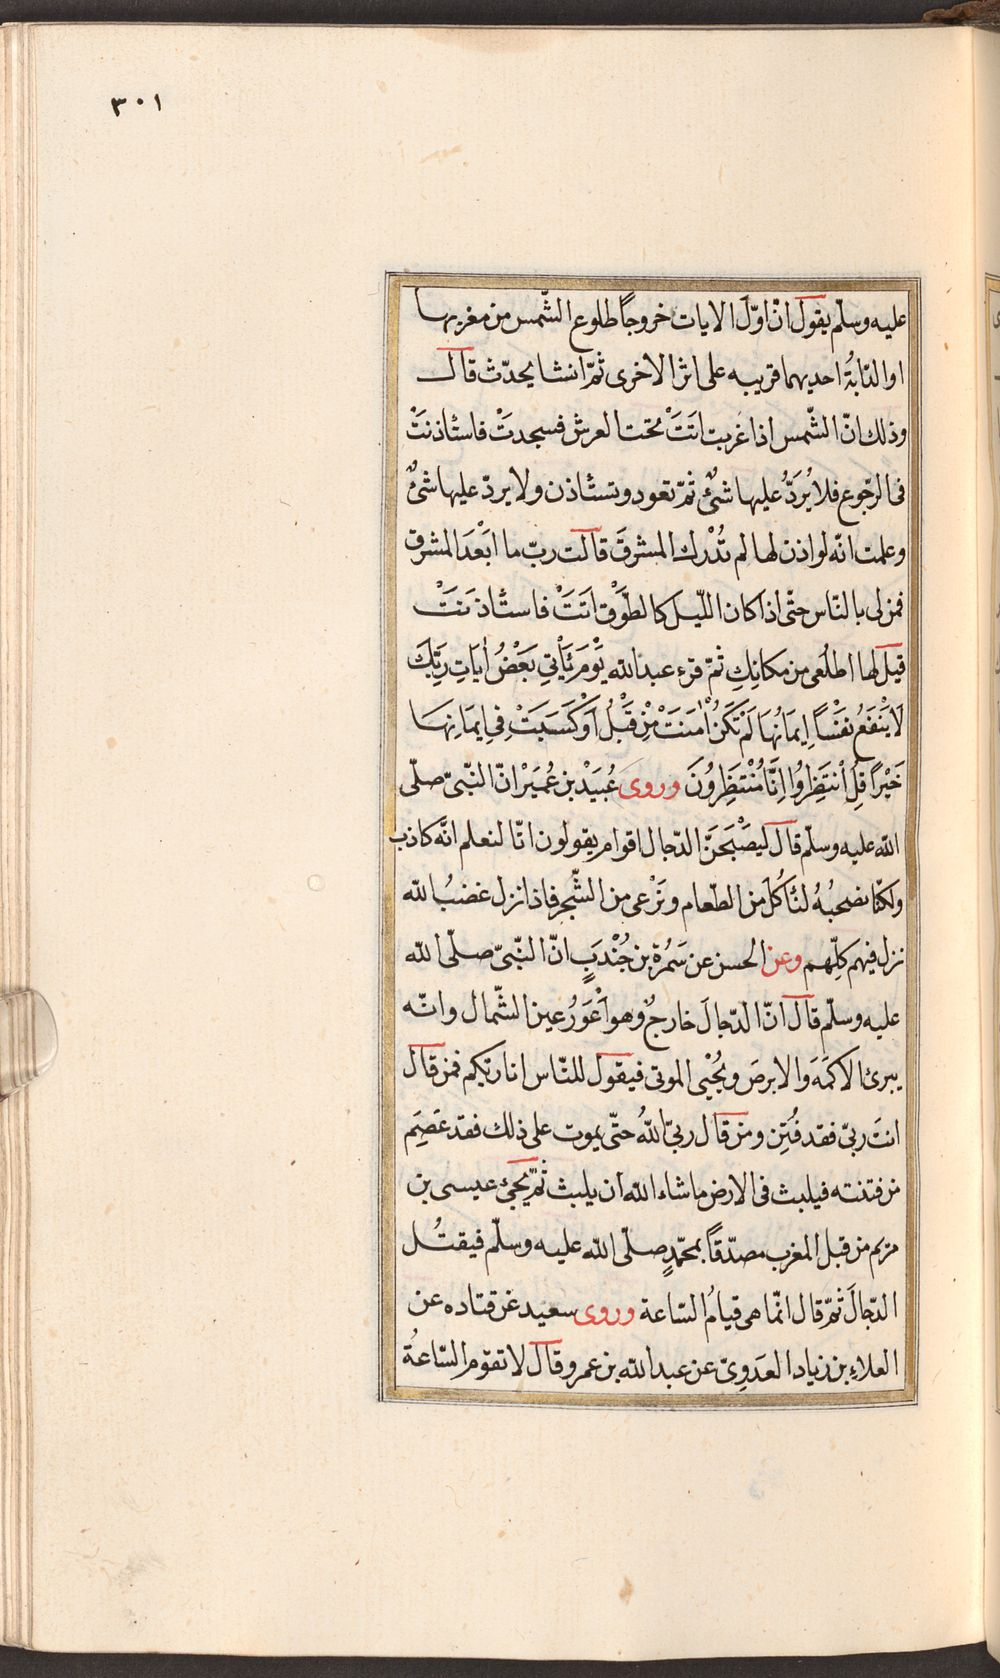 ٣٠١
عليه وسلّم يقول انّ اوّل الايات خروجاً طلوع الشّمس من مغربها
او الدّابةُ احديهما قريبه على اثر الاخرى ثمّ انشا يحدّث قال
وذلك انّ الشّمس اذا غربت اتَتَْ تحت العرش فسجدتْ فاستأذنتْ
فى الرّجوع فلا يُرَدُّ عليها شىٌٔ ثمّ تعود وتستأذن ولا يردّ عليها شىٌٔ
وعلمت انّه لو اذن لها لم تُدْرك المشرقَ قالت ربّ ما ابَعْدَ المشرق
فمن لى بالنّاس حتّى اذا كان اللّيل كالطَّوْق اتَتَْ فاستأذنَتَْ
قيل لها اطلُعى من مكانِكِ ثمّ قرء عبد اللّه يَوْمَ يَأْتِي بَعْضُ اٰيَاتِ رَبِّكَ
لَا يَنْفَعُ نَفْسًا اِيمَانُهَا لَمْ تَكُنْ اٰمَنَتْ مِنْ قَبْلُ اَوْ كَسَبَتْ فِي اِيمَانِهَا
خَيْرًا قُلِ انْتَظِرُوا اِنَّا مُنْتَظِرُونَ وروى عُبَيْد بن عُمَيْر انّ النّبىّ صلّى
اللّه عليه وسلّم قال ليصْبَحَنَّ الدّجال اقوام يقولون انّا لنعلم انّه كاذب
ولكنّا نصحبُهُ لنَأكُلَ من الطّعام ونَرْعى من الشّجر فاذا نزل غضبُ اللّه
نزل فيهم كلِّهم وعن الحسن عن سَمُرة بن جُنْدَبٍ انّ النّبىّ صلّى اللّه
عليه وسلّم قال انّ الدّجالَ خارجٌ وهو اَعْوَرُ عين الشّمال وانّه
يبرئ الاكمَهَ والابرصَ ويُحْيى الموتى فيقول للنّاس انا ربّكم فمن قال
انتَ ربّى فقد فُتِن ومن قال ربّى اللّهُ حتّى يموت على ذلك فقد عَصِمَ
من فتنته فيلبث فى الارض ما شاء اللّه ان يلبث ثمّ يجئ عيسى بن
مريم من قبل المغرب مصدّقاً بمحمّدٍ صلّى اللّه عليه وسلّم فيقتُل
الدّجالَ ثمّ قال انّما هى قيامُ السّاعة وروى سعيد عن قتاده عن
العلاءِ بن زياد العَدَوِىّ عن عبد اللّه بن عمرو قال لا تقوم السّاعةُ